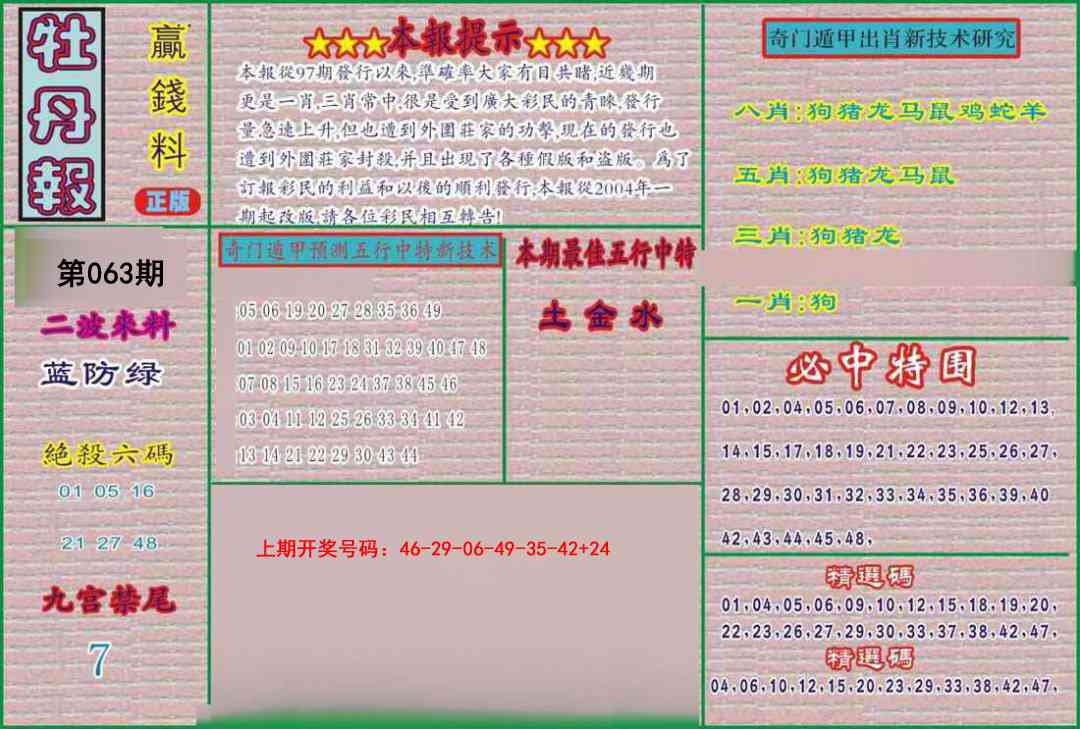 牡丹報
贏錢料
正版
★★★本報提示★★★
本報從97期發行以來,準確率大家有目共睹,近幾期
更是一肖,三肖常中,很是受到廣大彩民的青睞,發行
量急速上升,但也遭到外圍莊家的功擊,現在的發行也
遭到外圍莊家封殺,并且出現了各種假版和盜版。爲了
訂報彩民的利益和以後的順利發行,本報從2004年一
期起改版,請各位彩民相互轉告!
奇门遁甲出肖新技术研究
八肖:狗猪龙马鼠鸡蛇羊
五肖:狗猪龙马鼠
三肖:狗猪龙
一肖:狗
第063期
二波來料
蓝防绿
絕殺六碼
01 05 16
21 27 48
九宫禁尾
7
奇门遁甲预测五行中特新技术
05 06 19 20 27 28 35 36 49
01 02 09 10 17 18 31 32 39 40 47 48
07 08 15 16 23 24 37 38 45 46
03 04 11 12 25 26 33 34 41 42
13 14 21 22 29 30 43 44
本期最佳五行中特
土金水
上期开奖号码：46-29-06-49-35-42+24
必中特围
01,02,04,05,06,07,08,09,10,12,13,
14,15,17,18,19,21,22,23,25,26,27,
28,29,30,31,32,33,34,35,36,39,40
42,43,44,45,48,
精選碼
01,04,05,06,09,10,12,15,18,19,20,
22,23,26,27,29,30,33,37,38,42,47,
精選碼
04,06,10,12,15,20,23,29,33,38,42,47,